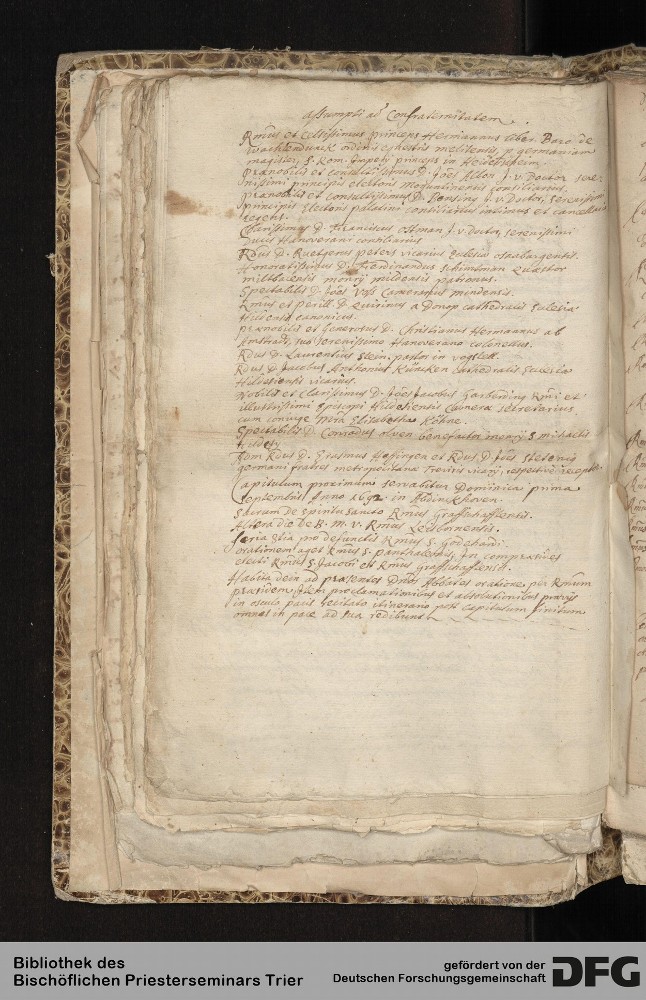 assumpti ad Confraternitatem.
Rmus et Celsissimus princeps Hermannus liber Baro de
Wachtendunck ordinis equestris melitensis, p germaniam
magister, S. Rom. Impery princeps in Heidersheim.
Prænobilis et consultissimus D. Joes J. v. Doctor sere-
nissimi principis electoris moguntinensis consiliarius.
Prænobilis et consultissimus D. J. v. Doctor, serenissimi
principis Electoris palatini consiliarius intimus et cancellarius
regens.
Clarissimus D. Franciscus ostman J. v. doctor, serenissimi
Ducis Hanoverani consiliarius
Rdus D. Rutgerus peters vicarius Ecclesiæ osnaburgensis.
Honoratissimus D. Ferdinandus Schintman quæstor
monry patronus.
Spectabilis D. Joes Voss Camerarius mindensis.
Rmus et perill. D. quirinus a Donop cathedralis Ecclesiæ
Hildens. canonicus.
prænobilis et Generosus D. Christianus Hermannus ab
sub serenissimo Hanoverano colonellus.
Rdus D. Laurentius Stein. pastor in
Rdus D. Jacobus Anthonius Küncken Cathedralis Ecclesiæ
Hildesiensis vicarius.
Nobilis et Clarissimus D. Joes Jacobus Garberding Rmi et
illustrissimi Episcopi Hildesiensis Cameræ secretarius.
cum coniuge Elisabetha Köhne.
Spectabilis D. Conradus alven benefactor monry S. michaelis
Hildesy.
Rdus D. Erasmus Hoffingen et Rdus D. Joes
germani fratres metropolitanæ Treviris vicarij, respective
Capitulum proximum servabitur Dominica prima
septembris Anno 1692 in Abdinckhoven.
Sacrum de Spiritu Sancto Rmus Graffschaffensis.
Altera die de B. M. V. Rmus Leisbornensis.
feria 3tia pro defunctis Rmus S. Godehardi.
orationem aget Rmus S. panthaleonis, In
electi Rmus S. Jacobi et Rmus Graffschaffensis.
Habita dein ad præsentes Dnos Abbates oratione per Rmum
præsidem, Item proclamationibus et absolutionibus prævijs
in osculo pacis recitato itinerario post capitulum finitum
omnes in pace ad sua redibunt
Bibliothek des
Bischöflichen Priesterseminars Trier
gefördert von der
Deutschen Forschungsgemeinschaft
DFG